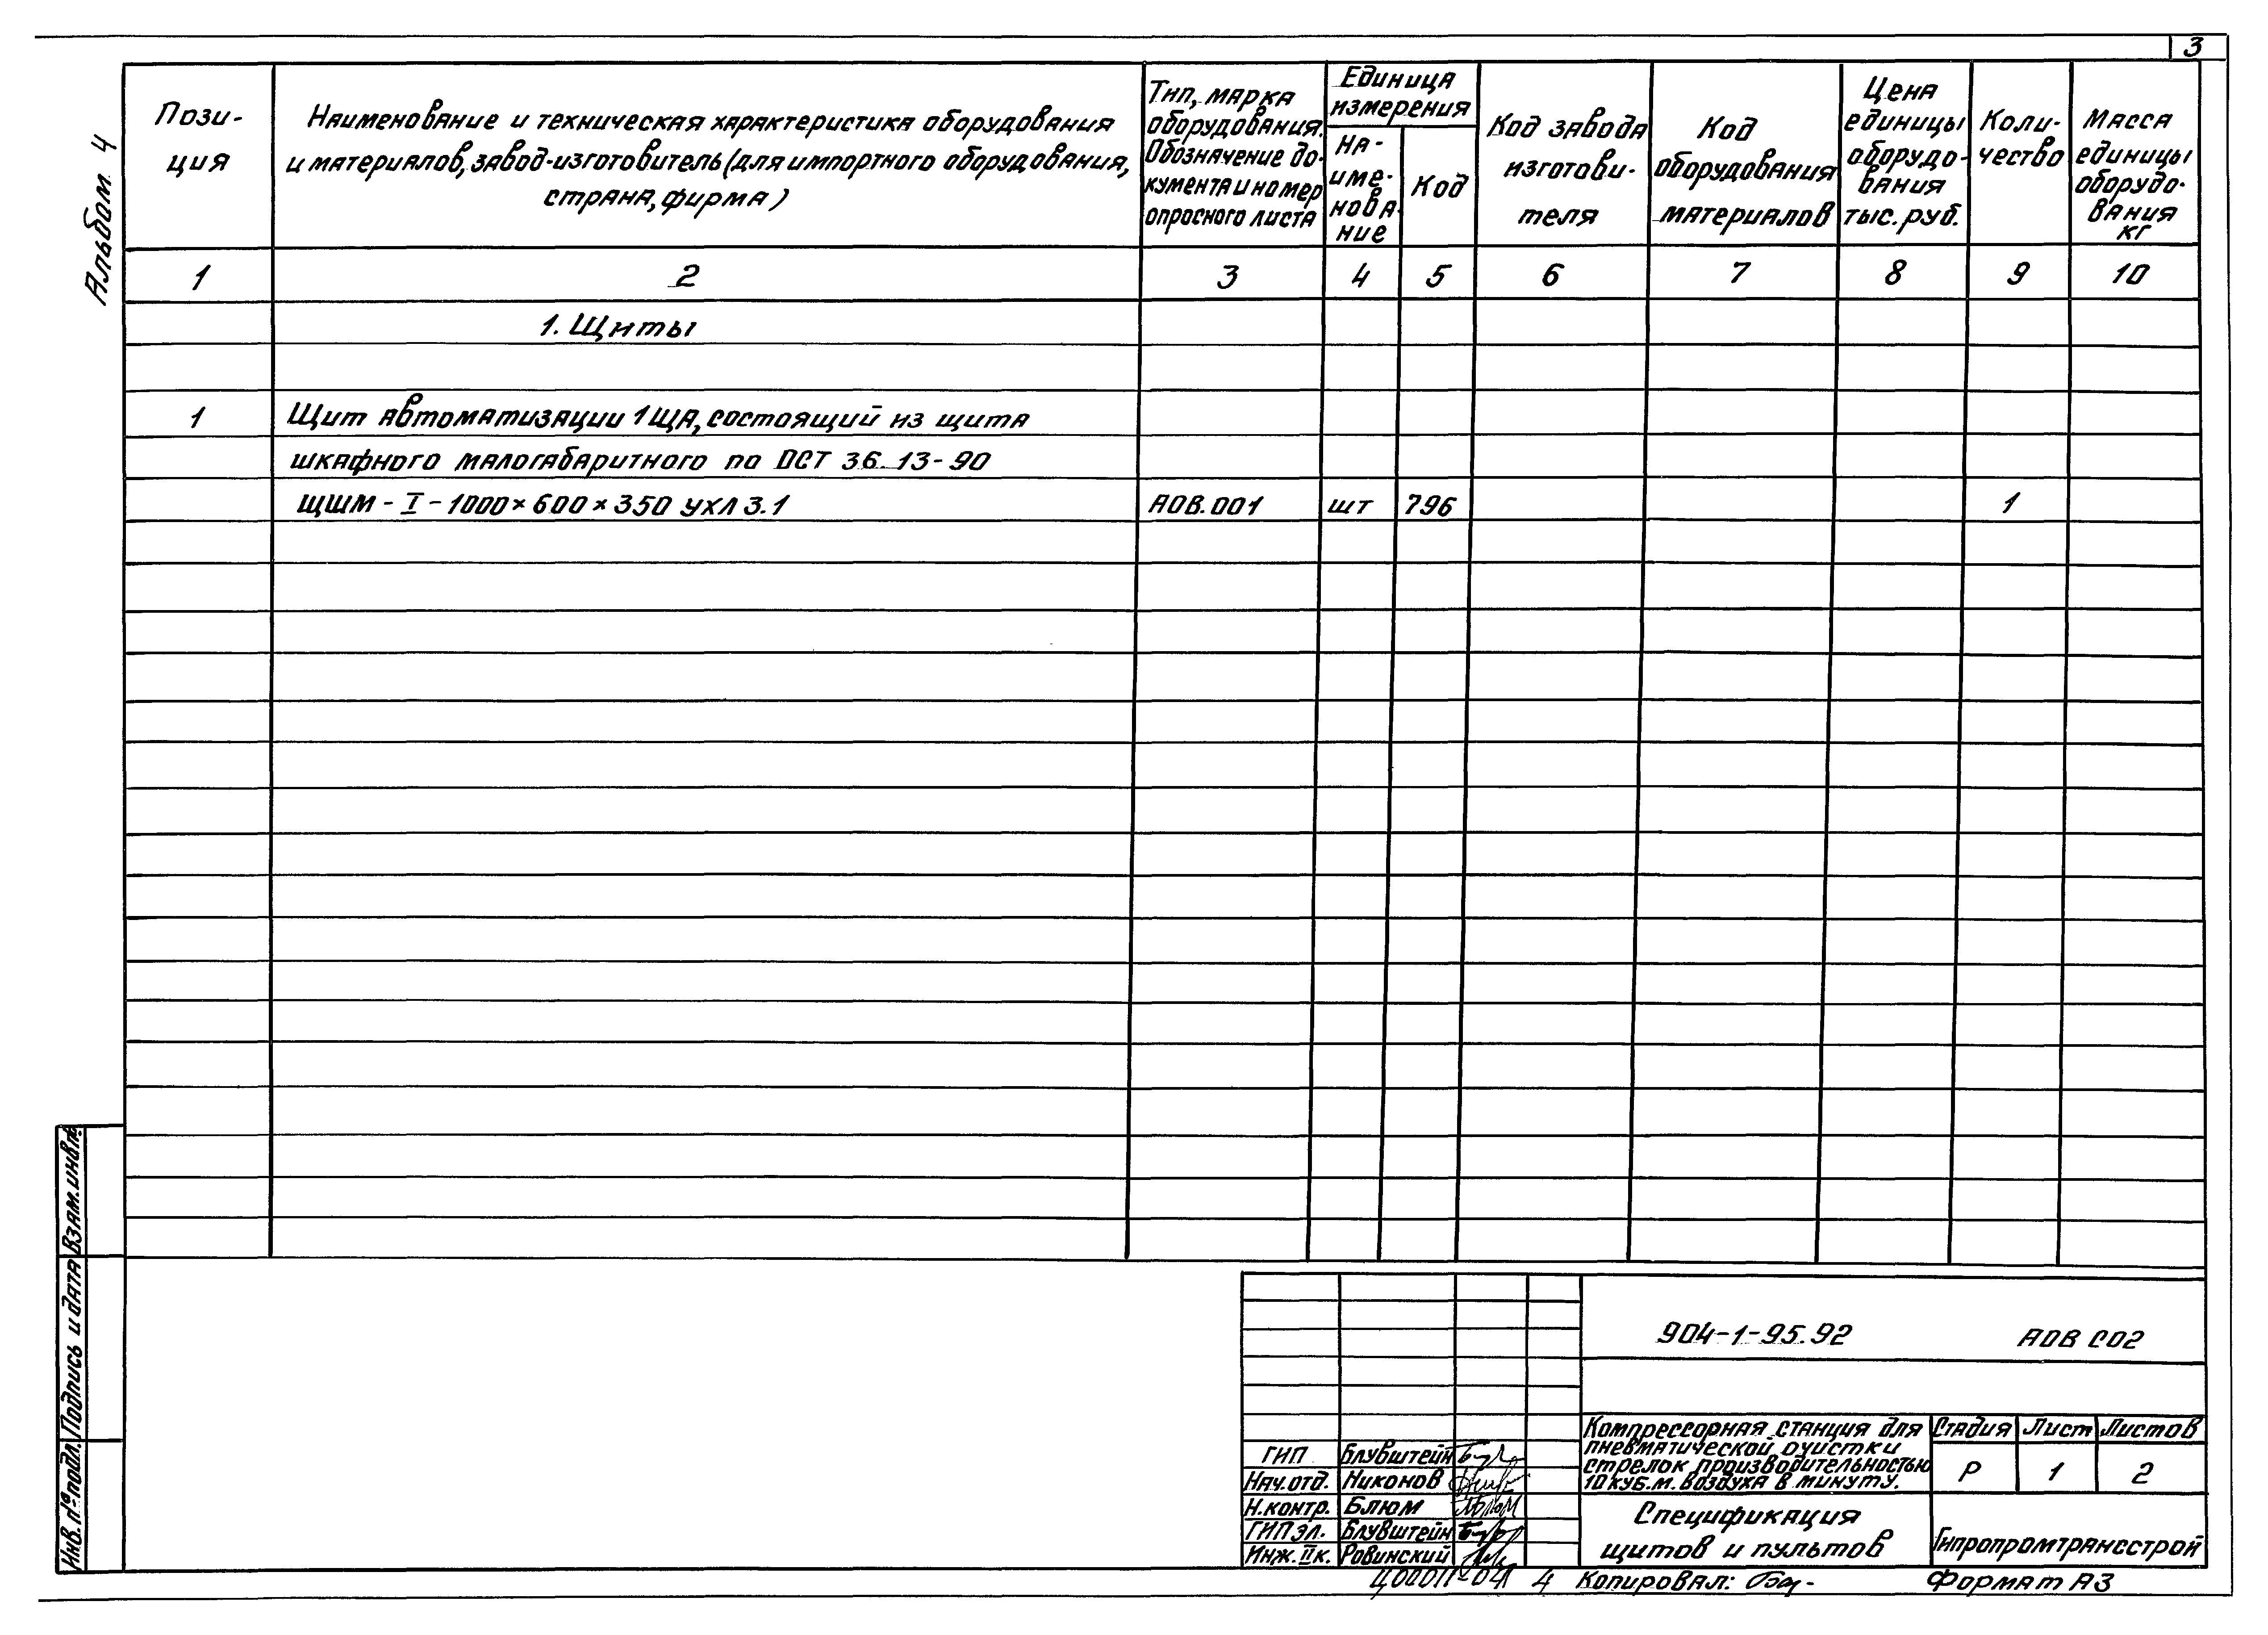 3
Альбом 4
Пози-
ция
Наименование и техническая характеристика оборудования
и материалов, завод-изготовитель (для импортного оборудования,
страна, фирма)
Тип, марка
оборудования.
Обозначение до-
кумента и номер
опросного листа
Единица
измерения
На-
име-
нова-
ние
Код
Код завода
изготови-
теля
Код
оборудования
материалов
Цена
единицы
оборудо-
вания
тыс. руб.
Коли-
чество
Масса
единицы
оборудо-
вания
кг
1 2 3 4 5 6 7 8 9 10
1. Щиты
1 Щит автоматизации 1ЩА, состоящий из щита
шкафного малогабаритного по ОСТ 36.13-90
ЩШМ-I-1000×600×350 УХЛ 3.1 АОВ.001 шт 796 1
Взам. инв. №
Подпись и дата
Инв. № подл.
904-1-95.92 АОВ СО2
Компрессорная станция для
пневматической очистки
стрелок производительностью
10 куб.м. воздуха в минуту.
Стадия Лист Листов
Р 1 2
ГИП Блувштейн
Нач.отд. Никонов
Н.контр. Блюм
ГИП эл. Блувштейн
Инж. IIк. Ровинский
Спецификация
щитов и пультов
Гипропромтрансстрой
Ц00011-04 4 Копировал: Формат А3